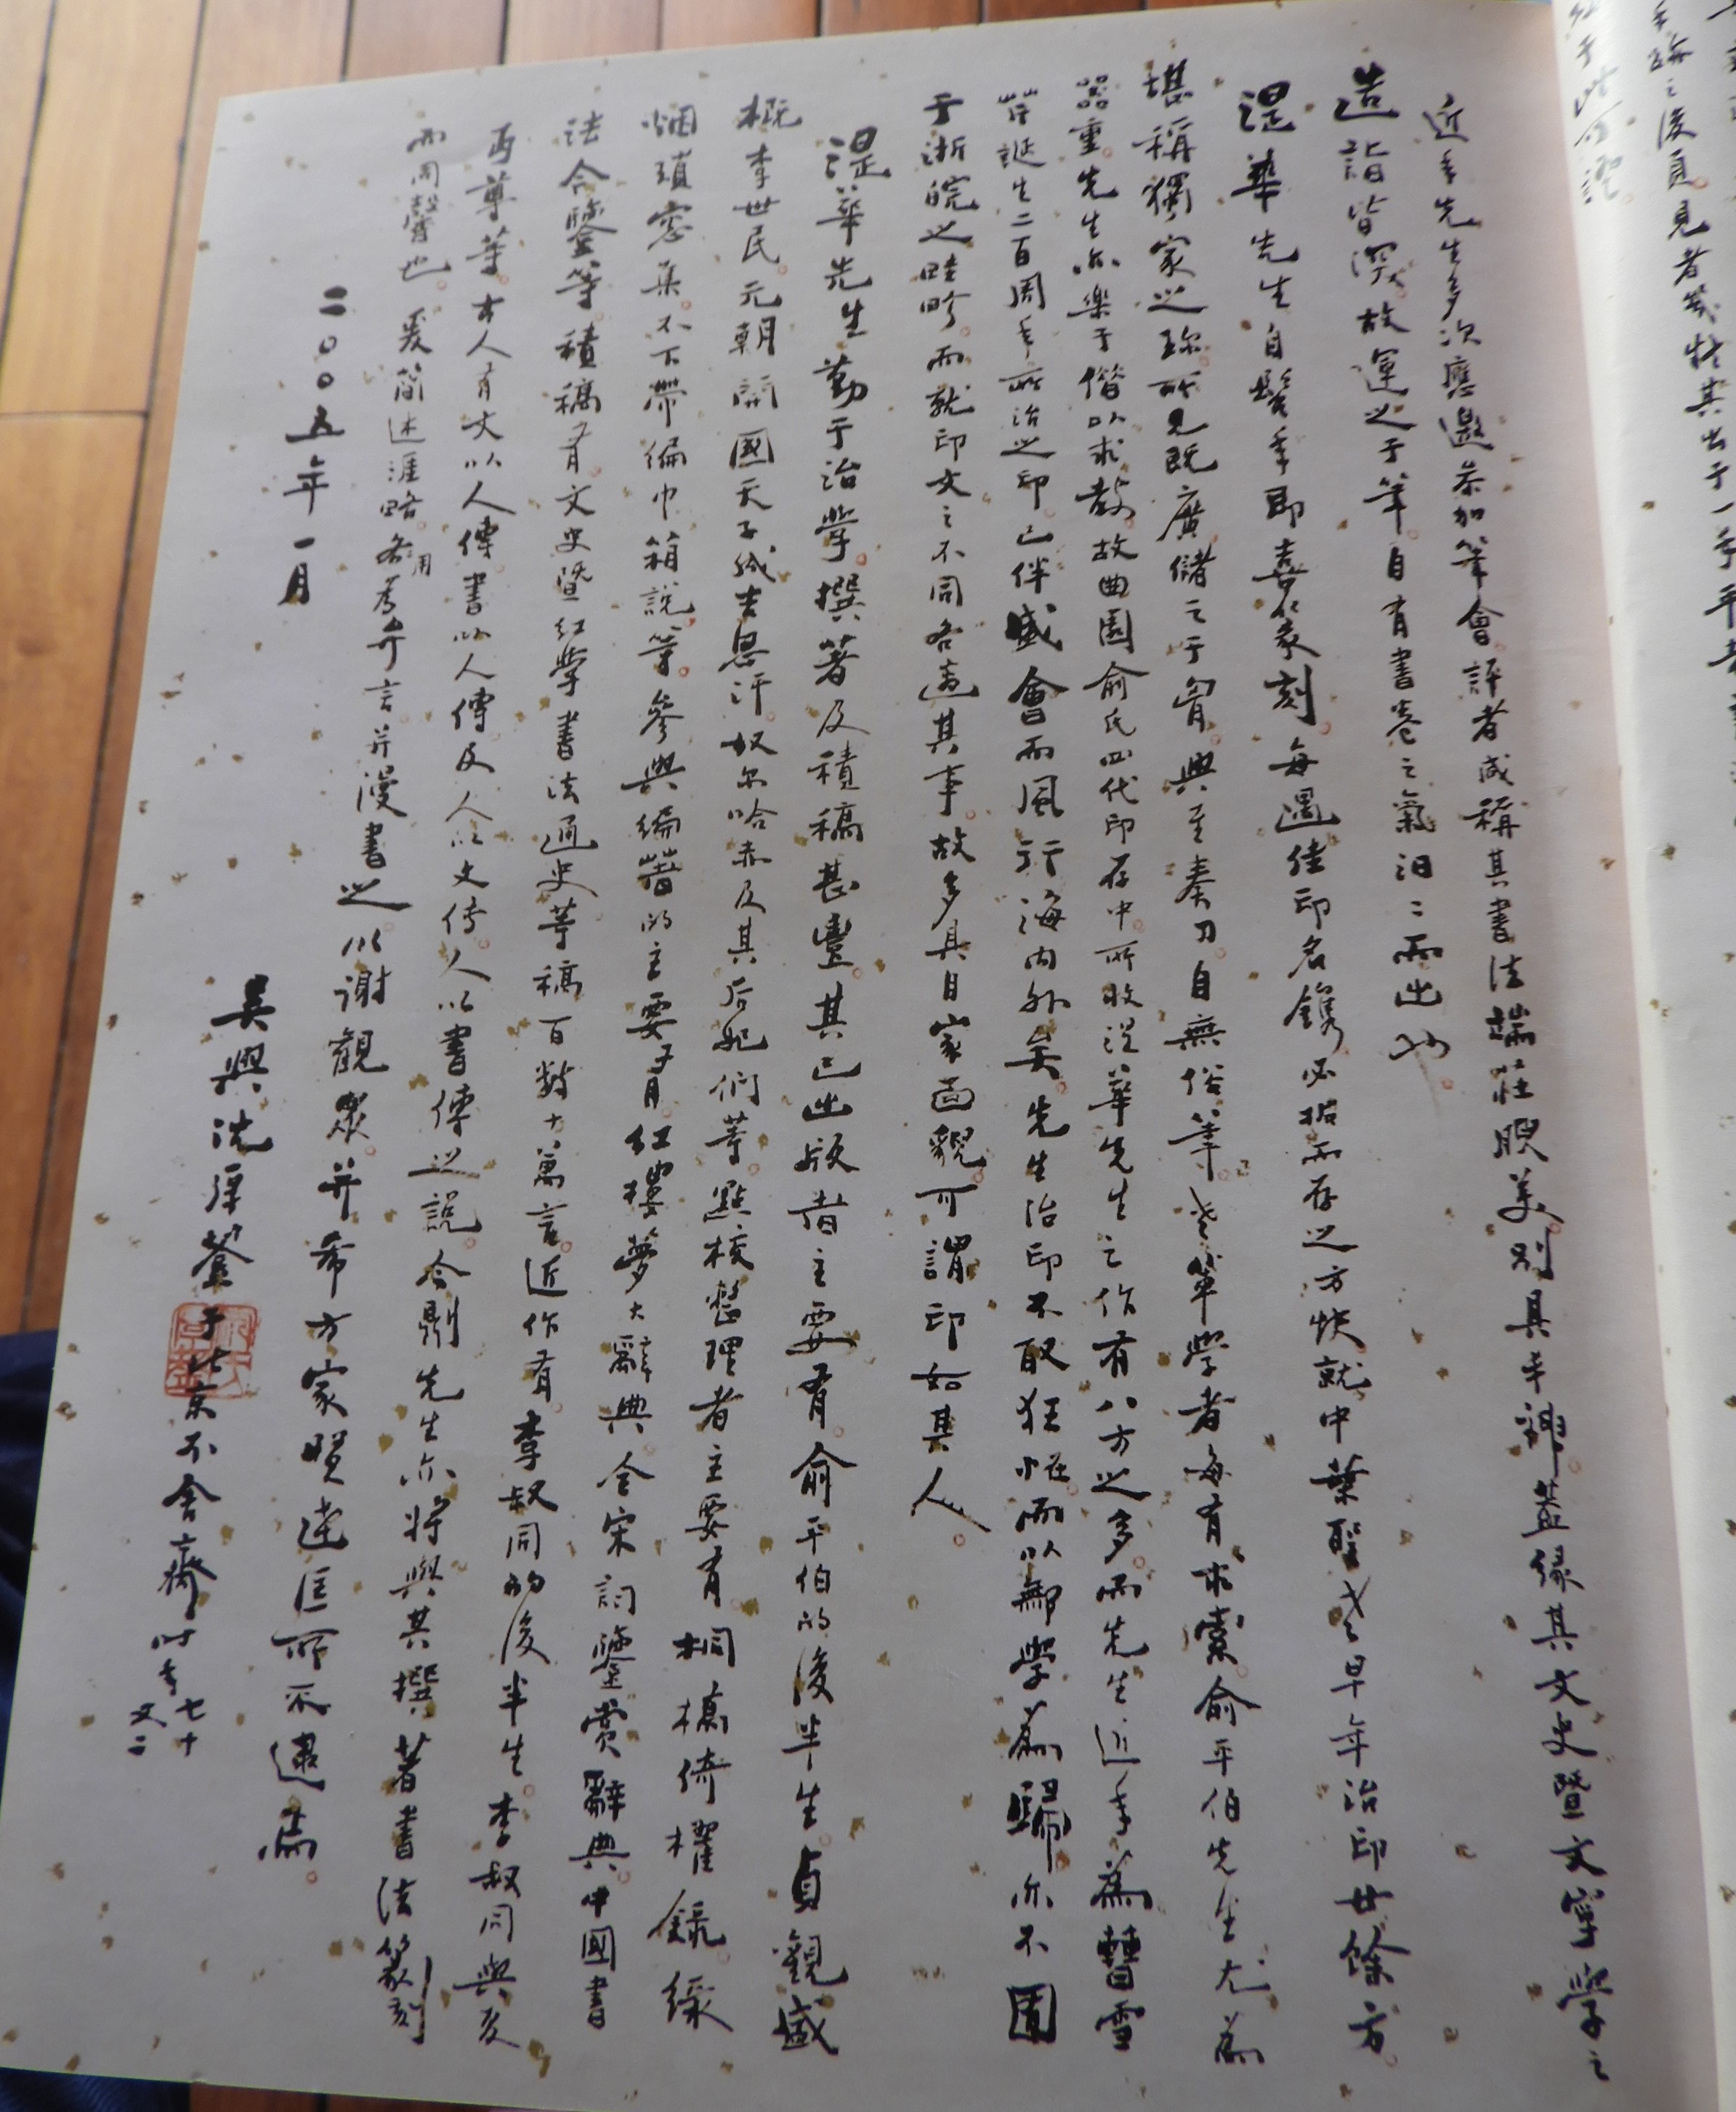 近年先生多次應邀參加筆會。評者咸稱其書法端莊腴美。別具丰神。蓋緣其文史暨文字學之
造詣皆深。故運之于筆。自有書卷之氣汩汩而出也。
湜華先生自髫年即喜篆刻。每遇佳印名鐫必搨而存之方快。就中葉聖老早年治印廿餘方。
堪稱獨家之珍。所見既廣儲之于胷。與至奏刀自無俗筆。老輩學者每有求索。俞平伯先生尤為
器重。先生亦樂于借以求教。故曲園俞氏四代印存中。所收湜華先生之作有八方之多。而先生近年為曹雪
芹誕生二百周年所治之印。已伴盛會而風行海內外矣。先生治印不取狂怪。而以鄦學為歸。亦不囿
于浙皖之畦畛。而就印文之不同各適其事。故多具自家面貌。可謂印如其人。
湜華先生勤于治學。撰著及積稿甚豐。其已出版者主要有俞平伯的後半生。貞觀盛
概李世民。元朝開國天子成吉思汗。奴尔哈赤及其后妃們等。點校整理者主要有桐橋倚櫂錄。緑
烟瑣窓集。不下帶編巾箱說等。參與編著的主要有紅樓夢大辭典。全宋詞鑒賞辭典。中國書
法今鑒等。積稿有文史暨紅學書法通史等稿百數十萬言。近作有李叔同的後半生。李叔同與夏
丏尊等。古人有文以人傳書以人傳及人以文傳。人以書傳之說。今則先生亦將與其撰著書法篆刻
而同馨也。爰簡述涯略。各用考弁言并漫書之。以謝觀衆。并希方家賢達匡所不逮焉。
二〇〇五年一月
吳興沈厚鋆于北京不舍齋時年七十又二